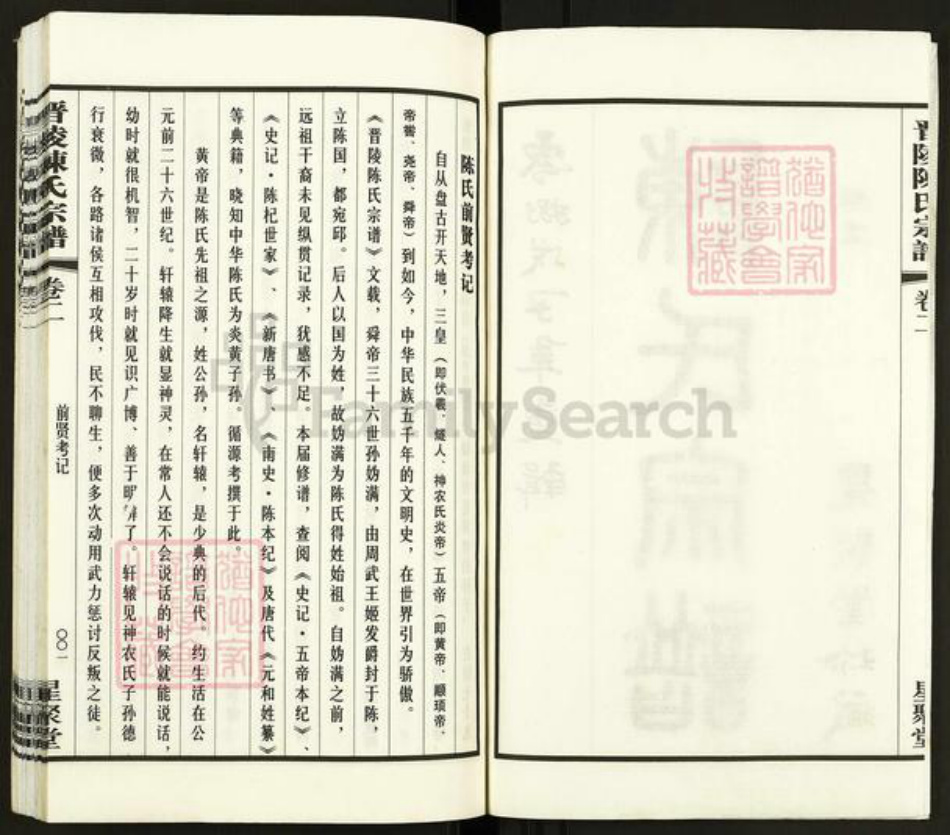 晋陵陳氏宗譜
卷二
星聚堂
陈氏前贤考记
自从盘古开天地，三皇（即伏羲、燧人、神农氏炎帝）五帝（即黄帝、顺琐帝、
帝喾、尧帝、舜帝）到如今，中华民族五千年的文明史，在世界引为骄傲。
《晋陵陈氏宗谱》文载，舜帝三十六世孙妫满，由周武王姬发爵封于陈，
立陈国，都宛邱。后人以国为姓，故妫满为陈氏得姓始祖。自妫满之前，
远祖干裔未见纵贯记录，犹感不足。本届修谱，查阅《史记·五帝本纪》、
《史记·陈杞世家》、《新唐书》、《南史·陈本纪》及唐代《元和姓纂》
等典籍，晓知中华陈氏为炎黄子孙。循源考撰于此。
黄帝是陈氏先祖之源，姓公孙，名轩辕，是少典的后代。约生活在公
元前二十六世纪。轩辕降生就显神灵，在常人还不会说话的时候就能说话，
幼时就很机智，二十岁时就见识广博、善于明辨了。轩辕见神农氏子孙德
行衰微，各路诸侯互相攻伐，民不聊生，便多次动用武力惩讨反叛之徒。
晋陵陳氏宗譜
卷二
前贤考记
〇〇一
星聚堂
FamilySearch